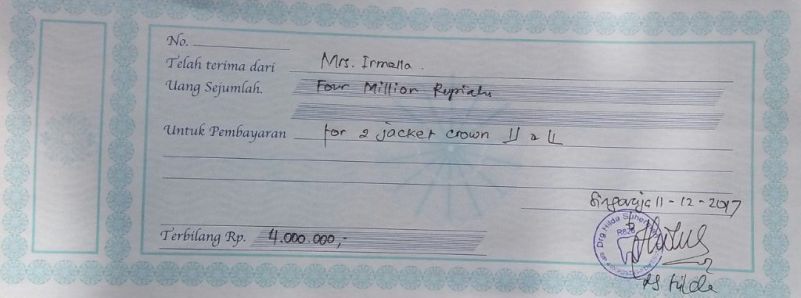 No.
Telah terima dari Mrs. Irmalla.
Uang Sejumlah. Four Million Rupiahs
Untuk Pembayaran for 2 jacket crown 1⌋ 2 ⌊1
Singaraja 11-12-2017
Terbilang Rp. 4.000.000,-
Drg. Hilda